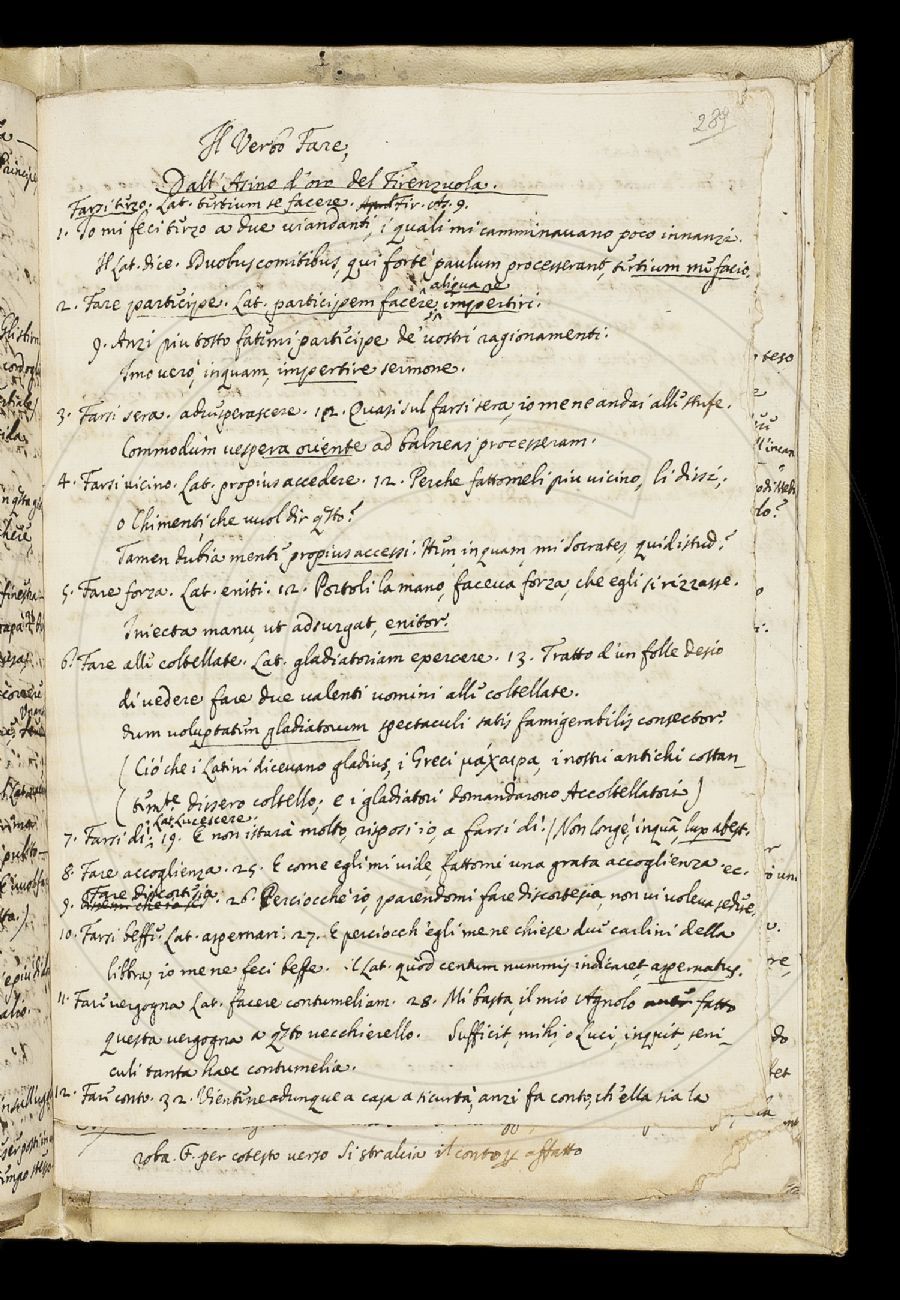 289
Il Verbo Fare,
Dall' Asino d'oro del Firenzuola.
Farsi terzo. Lat. tertium se facere. Fir. As. 9.
1. Io mi feci terzo a due viandanti, i quali mi camminavano poco innanzi.
Il Lat. dice. Duobus comitibus, qui forte paulum processerant, tertium me facio.
aliqua re
2. Fare partecipe. Lat. participem facere, impertiri.
9. Anzi piu tosto fatemi partecipe de' vostri ragionamenti.
Imo vero, inquam, impertire sermone.
3. Farsi sera. advesperascere. 12. Quasi sul farsi sera, io me ne andai alle stufe.
Commodum vespera oriente ad balneas processeram.
4. Farsi vicino. Lat. propius accedere. 12. Perche fattomeli piu vicino, li dissi,
o Chimenti, che vuol dir qsto?
Tamen dubia mente propius accessi. Hem, inquam, mi Socrates, quid istud?
5. Fare forza. Lat. eniti. 12. Portoli la mano, faceva forza, che egli si rizzasse.
Iniecta manu, ut adsurgat, enitor.
6. Fare alle coltellate. Lat. gladiatoriam exercere. 13. Tratto d'un folle desio
di vedere fare due valenti uomini alle coltellate.
dum voluptatem gladiatorum spectaculi satis famigerabilis consector.
(Ciò che i Latini dicevano gladius, i Greci μάχαιρα, i nostri antichi costan-
(temte dissero coltello; e i gladiatori domandarono Accoltellatori)
Lat. Lucescere.
7. Farsi dì. 19. E non istarà molto, risposi io, a farsi dì. (Non longe, inquā, lux abest.
8. Fare accoglienza. 25. E come egli mi vide, fattomi una grata accoglienza. ec.
Fare discortesia
9. 26. Perciocchè io, parendomi fare discortesia, non vi voleva sedere.
10. Farsi beffe. Lat. aspernari. 27. E perciocch' egli me ne chiese due carlini della
libbra, io me ne feci beffe. il Lat. quod centum nummis indicaret, aspernatus.
11. Fare vergogna Lat. facere contumeliam. 28. Mi basta, il mio Agnolo fatto
questa vergogna a qsto vecchierello. Sufficit, mihi, o Luci, inquit, seni-
culi tanta haec contumelia.
12. Fare conto. 32. Vientene adunque a casa a sicurtà, anzi fa conto, ch'ella sia la
roba. G. per cotesto verso Si stralcia il conto affatto